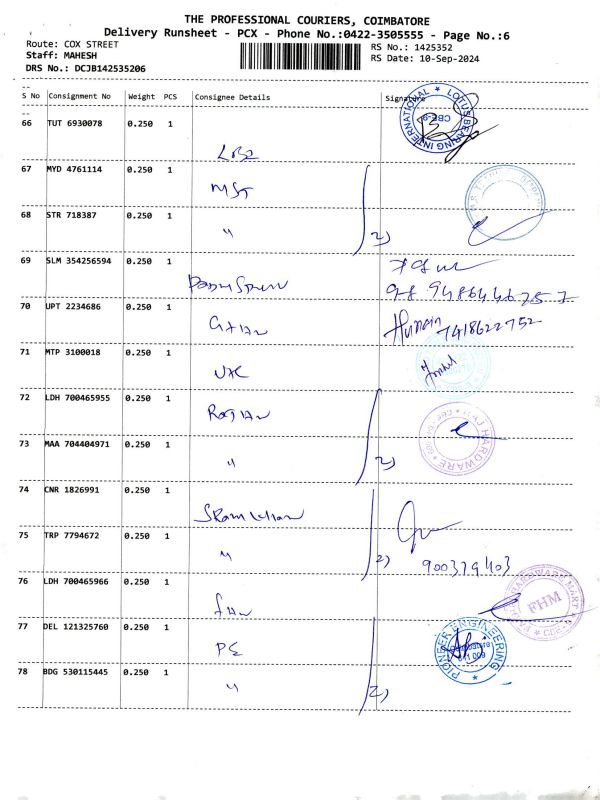 THE PROFESSIONAL COURIERS, COIMBATORE
Delivery Runsheet - PCX - Phone No.:0422-3505555 - Page No.:6
Route: COX STREET
Staff: MAHESH
DRS No.: DCJB142535206
RS No.: 1425352
RS Date: 10-Sep-2024
S No Consignment No Weight PCS Consignee Details Signature
LOTUS BEARING INTERNATIONAL * CBE-9
66 TUT 6930078 0.250 1
LBI
67 MYD 4761114 0.250 1
MST
68 STR 718387 0.250 1
" 2)
69 SLM 354256594 0.250 1
9486446757
70 UPT 2234686 0.250 1
Hussain 7418622752
71 MTP 3100018 0.250 1
72 LDH 700465955 0.250 1
RAJ HARDWARE
73 MAA 704404971 0.250 1
" 2)
74 CNR 1826991 0.250 1
75 TRP 7794672 0.250 1
" 2)
76 LDH 700465966 0.250 1
FHM
77 DEL 121325760 0.250 1
PE
PIONEER ENGINEERING
Coimbatore
641 009
78 BDG 530115445 0.250 1
" 2)